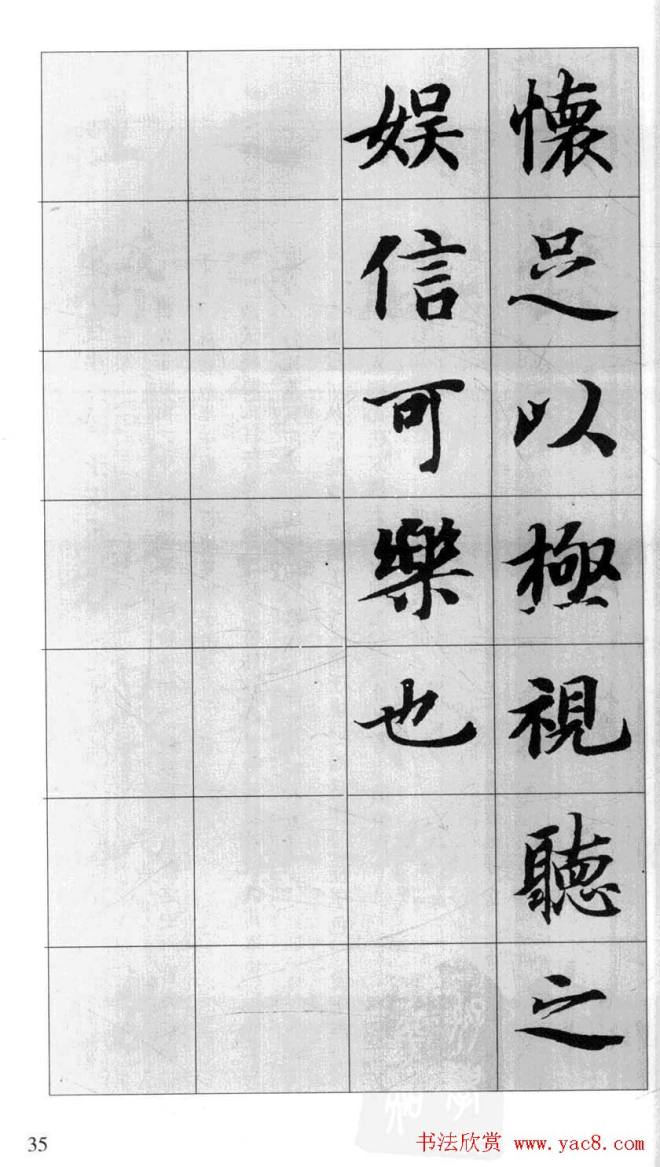 懷足以極視聽之
娛信可樂也
35
书法欣赏 www.yac8.com